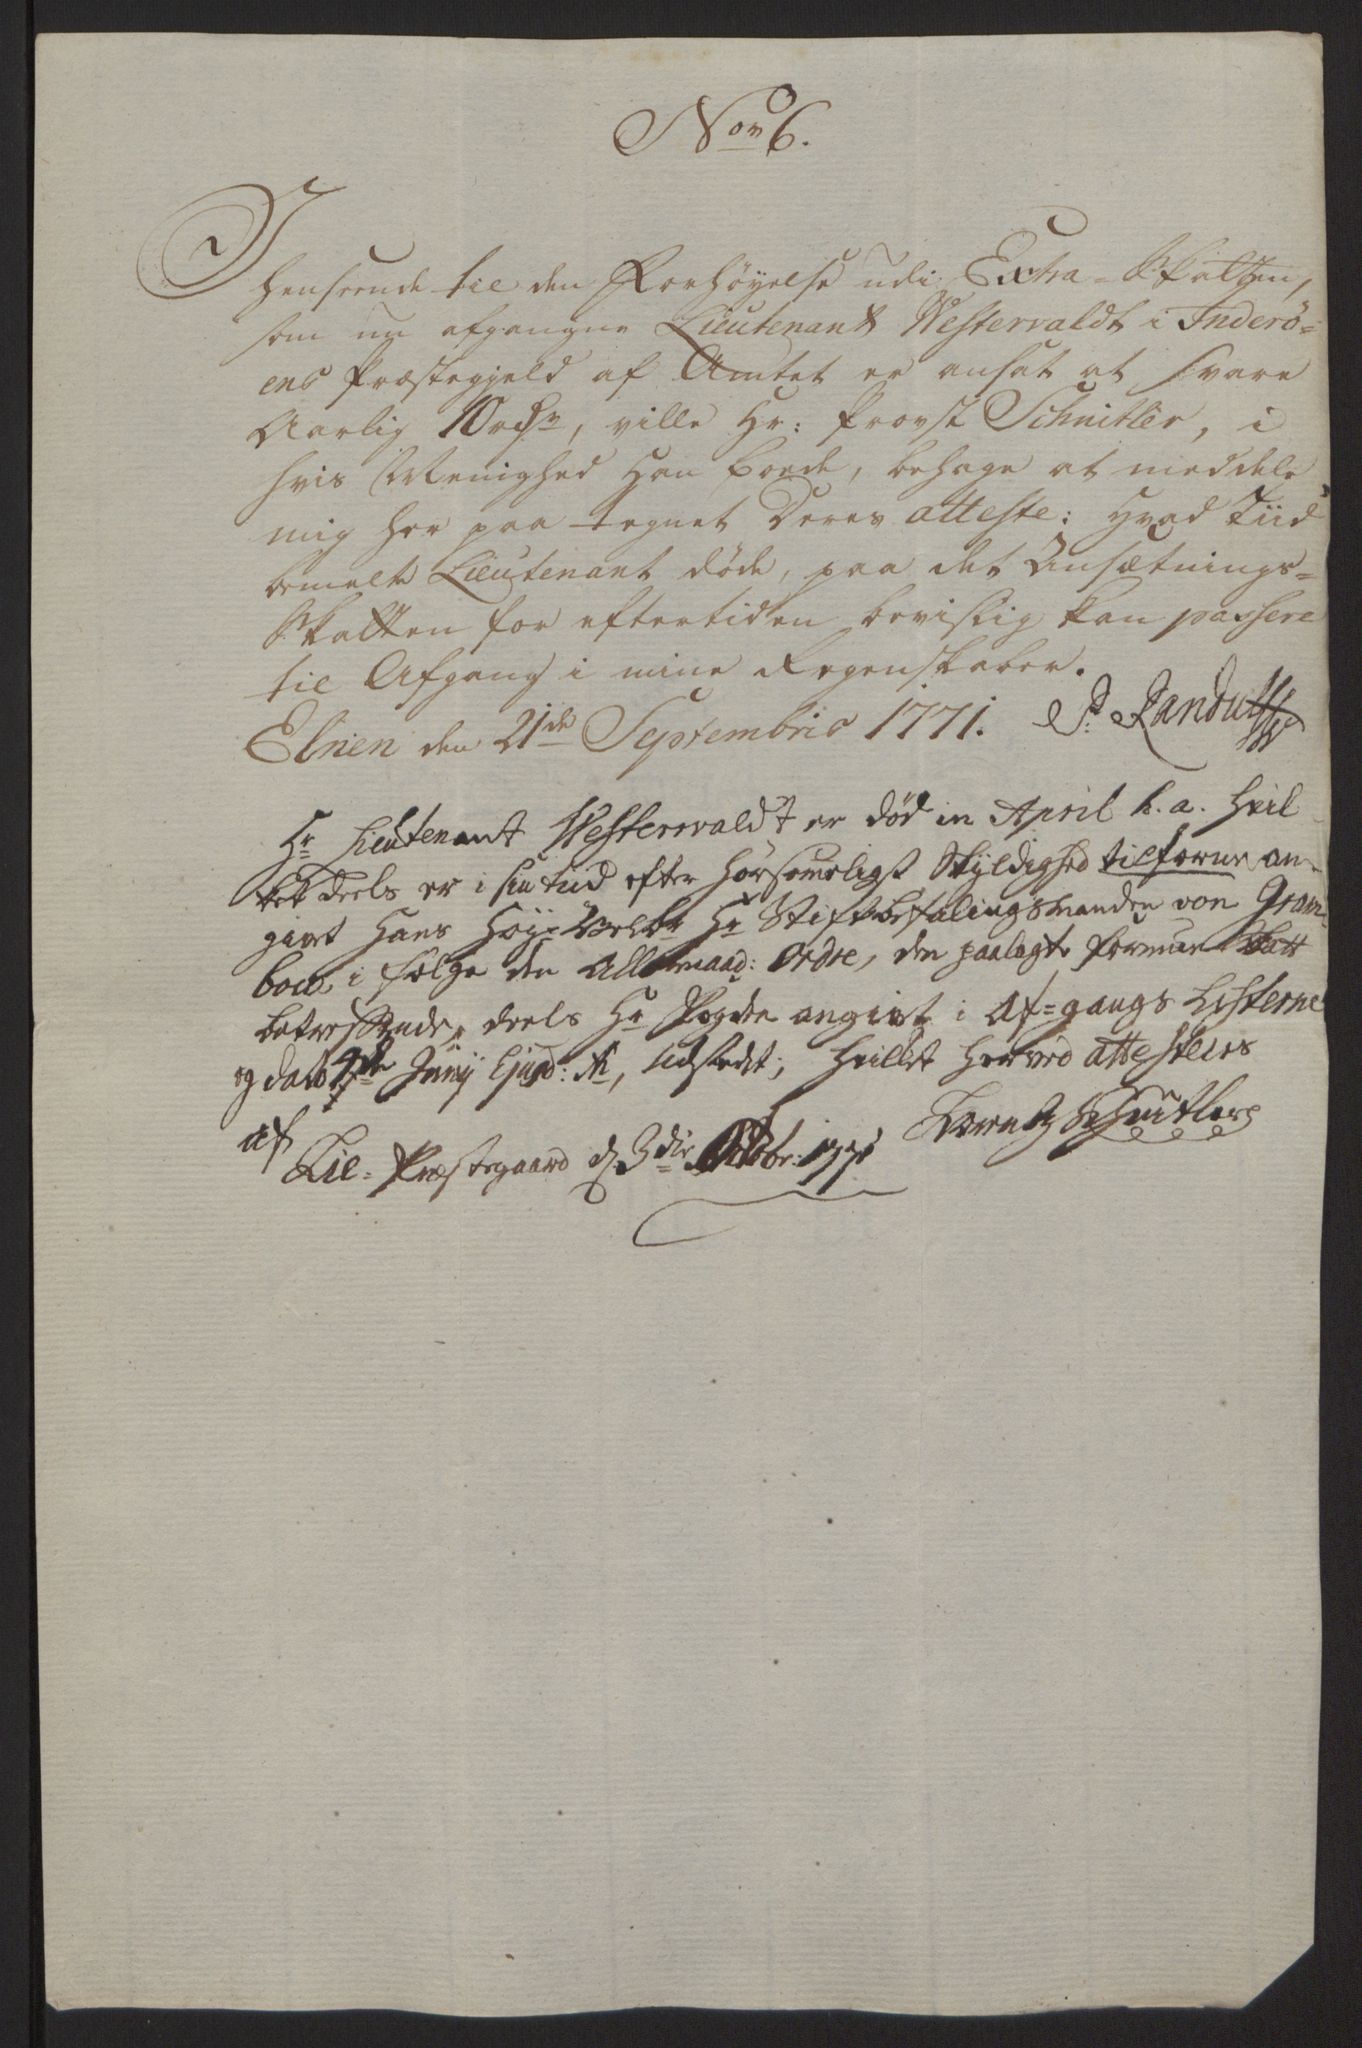 Nor 6.
I
henseende til den Forhöyelse udi Extra-Skatten,
som nu afgangne Lieutenant Westervaldt i Inderö=
ens Præstegjeld af Amtet er ansat at svare
Aarlig 10 rdr, ville Hr: Provst Schnitler, i
hvis Menighed Han boede, behage at meddele
mig her paa tegnet Deres atteste: Hvad Tiid
bemelte Lieutenant döde, paa det Ansætnings=
Skatten for eftertiden bevislig kan passere
til Afgang i mine Regenskaber.
Elnen den 21de Septembris 1771. P: Randulff
Hr Lieutenant Westerwaldt er död in April h. a. Hvil
ket deels er i sin tiid efter hörsommeligst Skyldighed tilforne an-
givet Hans Höy-Velbr Hr Stiftbefalingsmanden von Gram-
bow, i fölge den Ordre, den paalagte Formue Skatt
betreffende, deels Hr Fogden angivet i Af=gangs Listerne
og dato 7de Junij Ejusd: A, udstedt; hvilket herved attesteres
af
Lie-Præstegaard d 3die Octobr: 1771 Lorentz Schnitler